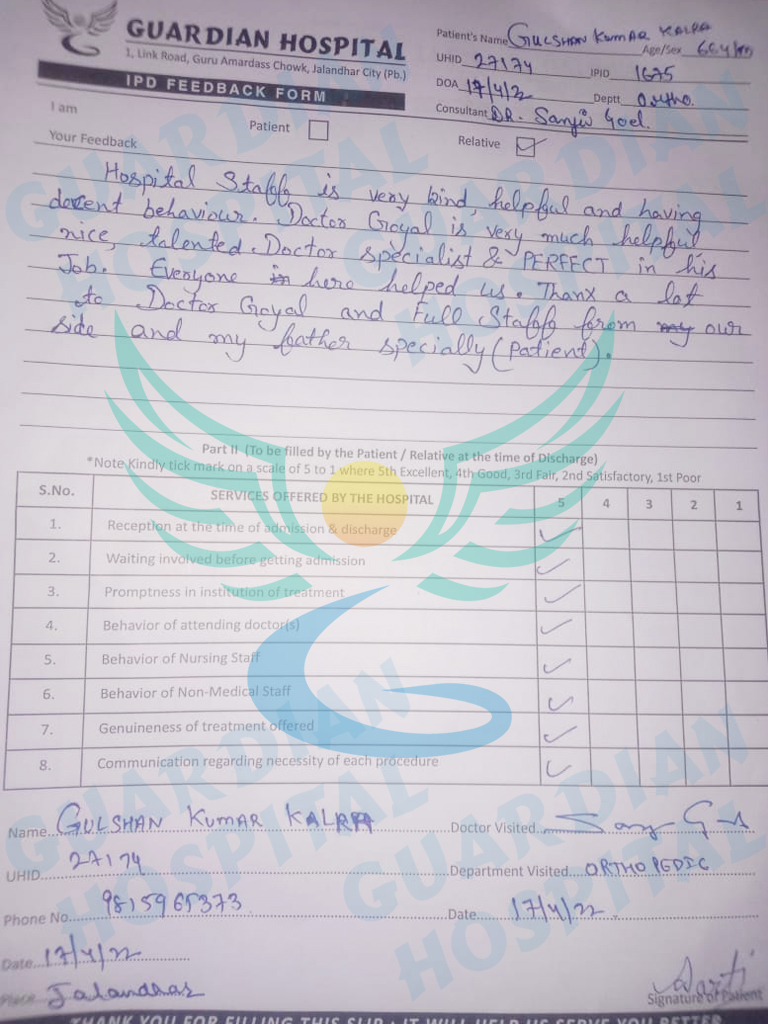 GUARDIAN HOSPITAL
1, Link Road, Guru Amardass Chowk, Jalandhar City (Pb.)
IPD FEEDBACK FORM
Patient's Name GULSHAN KUMAR KALRA
Age/Sex 66y/m
UHID 27174 IPID 1675
DOA 17/4/22 Deptt Ortho.
Consultant DR. Sanjiv Goel.
I am Patient Relative ✓
Your Feedback
Hospital Staff is very kind, helpful and having
decent behaviour. Doctor Goyal is very much helpful
nice, talented. Doctor specialist & PERFECT in his
Job. Everyone in here helped us. Thanx a lot
to Doctor Goyal and Full Staff from my our
side and my father specially (Patient).
Part II (To be filled by the Patient / Relative at the time of Discharge)
*Note Kindly tick mark on a scale of 5 to 1 where 5th Excellent, 4th Good, 3rd Fair, 2nd Satisfactory, 1st Poor
S.No. SERVICES OFFERED BY THE HOSPITAL 5 4 3 2 1
1. Reception at the time of admission & discharge ✓
2. Waiting involved before getting admission ✓
3. Promptness in institution of treatment ✓
4. Behavior of attending doctor(s) ✓
5. Behavior of Nursing Staff ✓
6. Behavior of Non-Medical Staff ✓
7. Genuineness of treatment offered ✓
8. Communication regarding necessity of each procedure ✓
Name GULSHAN KUMAR KALRA Doctor Visited
UHID 27174 Department Visited ORTHOPEDIC
Phone No. 9815965373 Date 17/4/22.
Date 17/4/22
Place Jalandhar Aarti
Signature of Patient
THANK YOU FOR FILLING THIS SLIP : IT WILL HELP US SERVE YOU BETTER
GUARDIAN HOSPITAL
GUARDIAN HOSPITAL
GUARDIAN HOSPITAL
GUARDIAN HOSPITAL